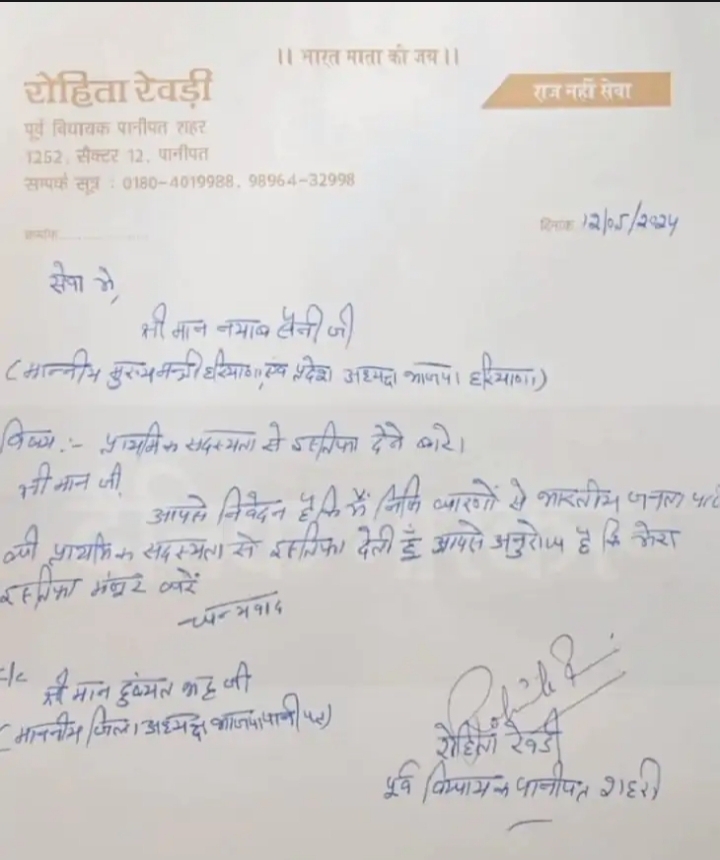 ।। भारत माता की जय।।
रोहिता रेवड़ी
राज नहीं सेवा
पूर्व विधायक पानीपत शहर
1252, सैक्टर 12, पानीपत
सम्पर्क सूत्र : 0180-4019988, 98964-32998
क्रमांक..................
दिनांक 12/05/2024
सेवा में,
श्री मान नयाब सैनी जी
(माननीय मुख्यमन्त्री हरियाणा, एवं प्रदेश अध्यक्ष भाजपा हरियाणा)
विषय :- प्राथमिक सदस्यता से इस्तिफा देने बारे।
श्री मान जी,
आपसे निवेदन है कि मैं निजि कारणों से भारतीय जनता पार्टी
की प्राथमिक सदस्यता से इस्तिफा देती हूँ आपसे अनुरोध है कि मेरा
इस्तिफा मंजूर करें
धन्यवाद
c/c श्री मान जी
(माननीय जिला अध्यक्ष भाजपा पानीपत)
रोहिता रेवडी
पूर्व विधायक पानीपत शहरी